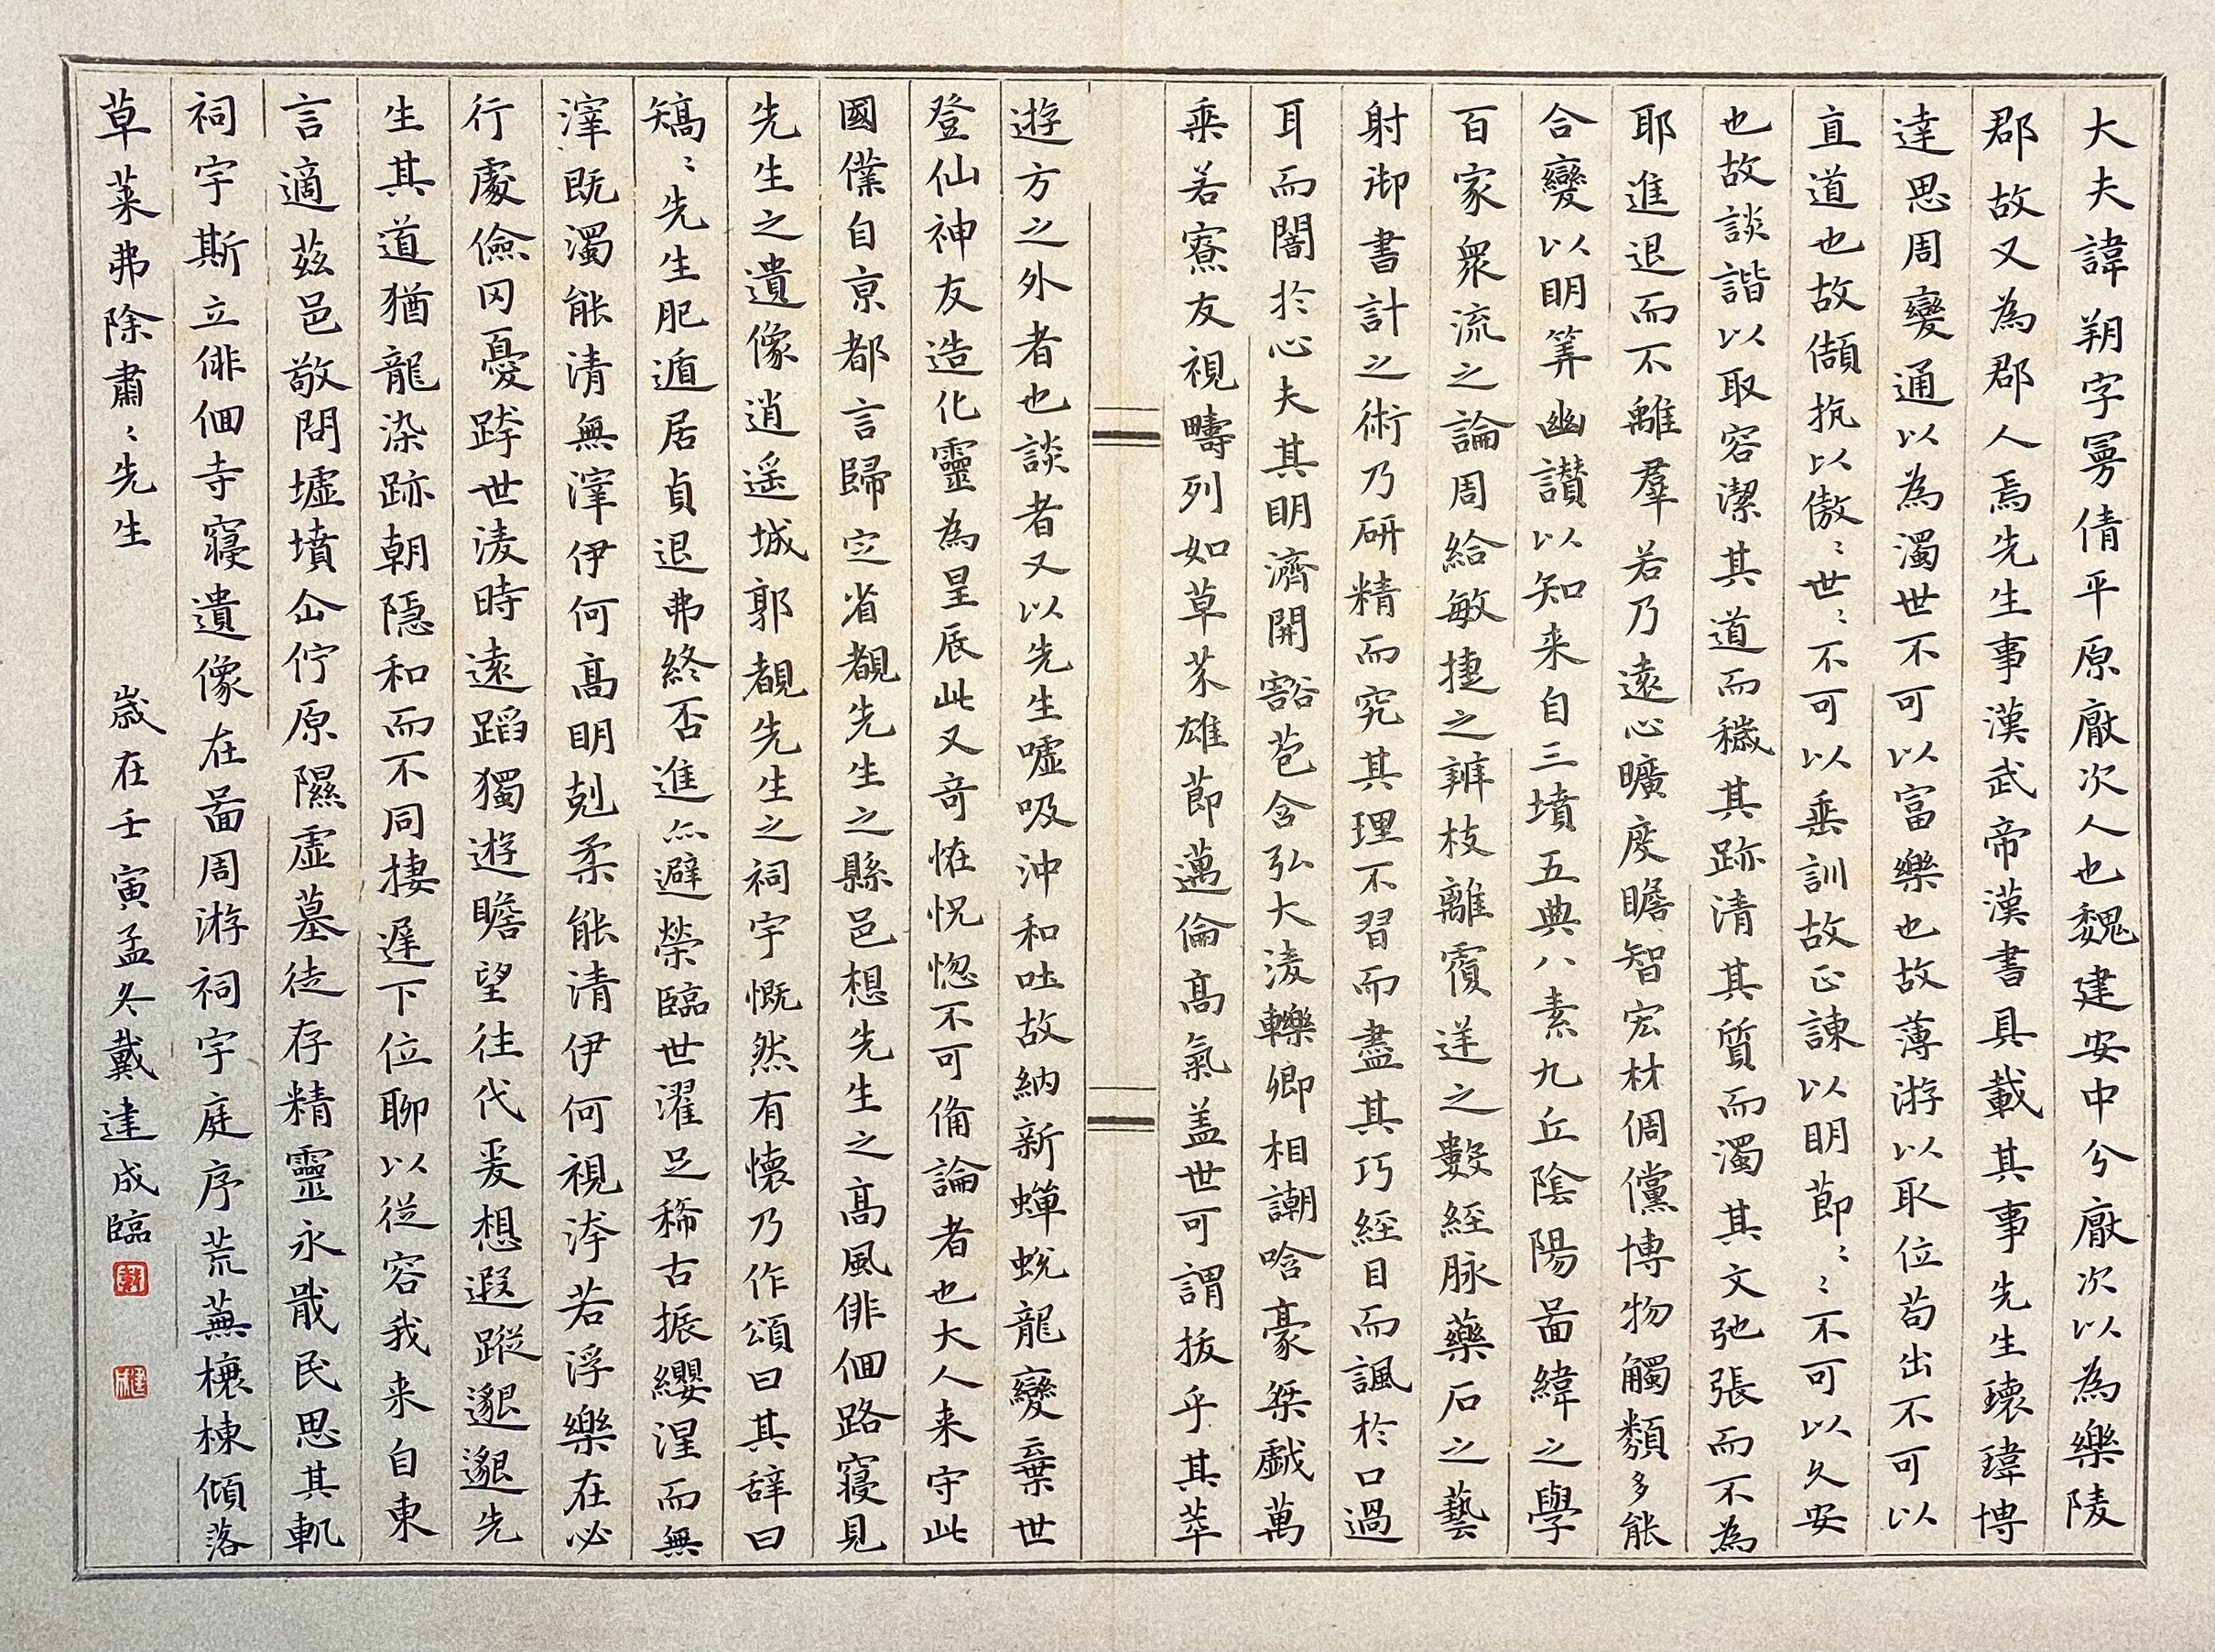 大夫諱朔字曼倩平原厭次人也魏建安中分厭次以為樂陵
郡故又為郡人焉先生事漢武帝漢書具載其事先生瓌瑋博
達思周變通以為濁世不可以富樂也故薄游以取位苟出不可以
直道也故頡抗以傲〻世〻不可以垂訓故正諫以明節〻〻不可以久安
也故談諧以取容潔其道而穢其跡清其質而濁其文弛張而不為
耶進退而不離羣若乃遠心曠度贍智宏材倜儻博物觸類多能
合變以明筭幽讃以知来自三墳五典八素九丘陰陽啚緯之學
百家衆流之論周給敏捷之辨枝離覆逆之數經脉藥石之藝
射御書計之術乃研精而究其理不習而盡其巧經目而諷於口過
耳而闇扵心夫其明濟開豁苞含弘大淩轢卿相謿哈豪桀戯萬
乘若寮友視疇列如草芥雄節邁倫髙氣盖世可謂拔乎其萃
遊方之外者也談者又以先生噓吸沖和吐故納新蟬蛻龍變棄世
登仙神友造化靈為星辰此又奇恠怳惚不可備論者也大人来守此
國僕自京都言歸定省覩先生之縣邑想先生之髙風俳佪路寢見
先生之遺像逍遥城郭覩先生之祠宇慨然有懐乃作頌曰其辞曰
矯〻先生肥遁居貞退弗終否進亦避榮臨世濯足稀古振纓涅而無
滓既濁能清無滓伊何髙明剋柔能清伊何視洿若浮樂在必
行處儉罔憂跨世淩時遠蹈獨遊瞻望往代爰想遐蹤邈邈先
生其道猶龍染跡朝隠和而不同棲遲下位聊以従容我来自東
言適茲邑敬問墟墳企佇原隰虚墓徒存精靈永戢民思其軌
祠宇斯立俳佪寺寢遺像在啚周游祠宇庭序荒蕪榱棟傾落
草莱弗除肅〻先生　歲在壬寅孟冬戴建成臨